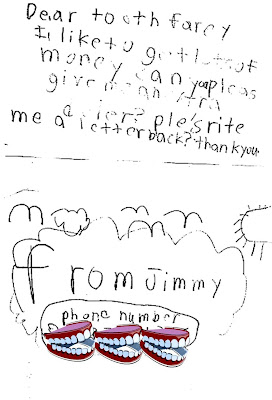 Dear tooth farey
I like to get lots of
money can you pleas
give me an xtra
ple's rite
me a letter back? thank you
From Jimmy
phone number